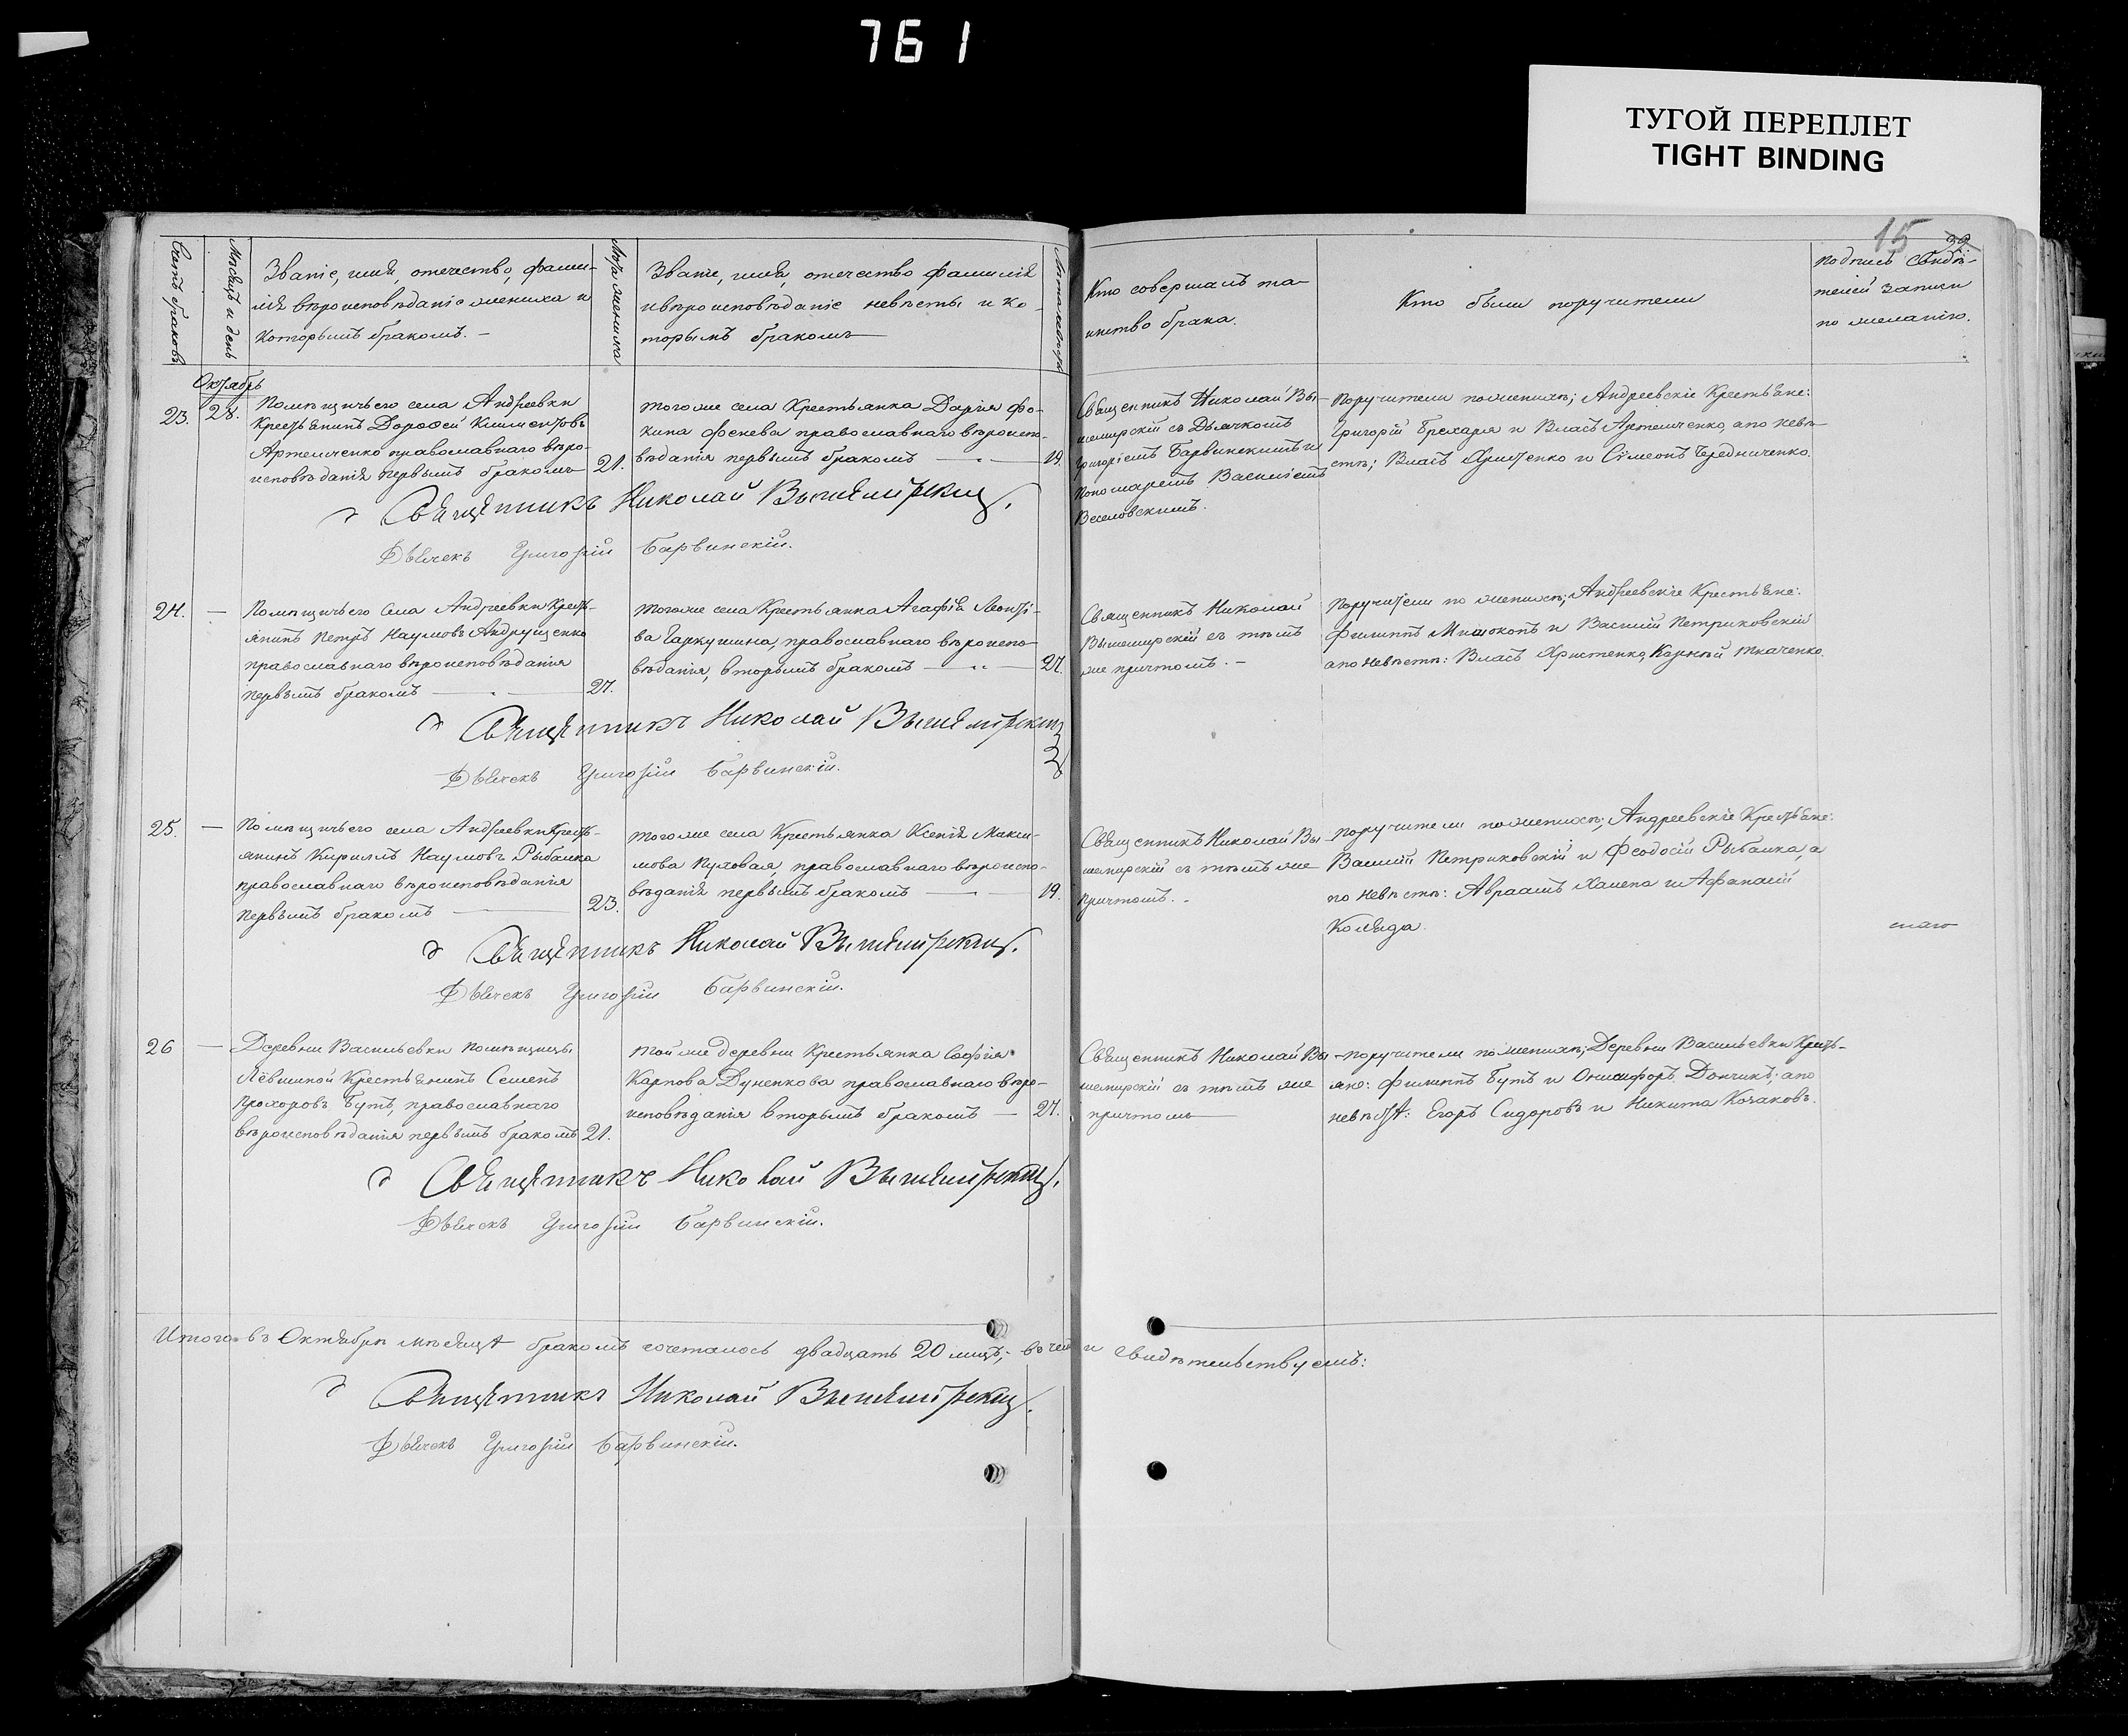 761
ТУГОЙ ПЕРЕПЛЕТ
TIGHT BINDING
15
Счетъ браковъ
Мѣсяцъ и день
Званіе, имя, отечество, фами-
лія вѣроисповѣданіе жениха и
которымъ бракомъ. –
Лѣта жениха
Званіе, имя, отечество фамилія
и вѣроисповѣданіе невѣсты и ко-
торымъ бракомъ
Лѣта невѣсты
Кто совершалъ та-
инство брака.
Кто были поручители
подпись свидѣ-
телей записи
по желанію.
Октябрь
23.
28.
Помѣщичьего села Андреевки
Крестьянинъ Дорофей Климентовъ
Артемченко православнаго вѣро-
исповѣданія первымъ бракомъ
21.
того же села Крестьянка Дарія Фо-
кина Фенева православнаго вѣроиспо-
вѣданія первымъ бракомъ
19.
Священникъ Николай Вы-
шемирскій съ Дьячкомъ
Григоріемъ Барвинскимъ и
Пономаремъ Василіемъ
Веселовскимъ.
Поручители по женихѣ; Андреевскіе Крестьяне:
Григорій Брехаря и Власъ Артемченко, а по невѣ-
стѣ; Власъ Христенко и Сімеонъ Чередниченко.
Священникъ Николай Вышемирскій.
Дьячекъ Григорій Барвинскій.
24.
—
Помѣщичьего Села Андреевки Кресть-
янинъ Петръ Наумовъ Андрущенко
православнаго вѣроисповѣданія
первымъ бракомъ
27.
того же села Крестьянка Агафія Леонті-
ва Гаркушина, православнаго вѣроиспо-
вѣданія, вторымъ бракомъ
27.
Священникъ Николай
Вышемирскій съ тѣмъ
же причтомъ. –
Поручители по женихѣ; Андреевскіе Крестьяне:
Филиппъ Мишоконъ и Василій Петриковскій
а по невѣстѣ: Власъ Христенко, Карпъ Ткаченко.
Священникъ Николай Вышемирскій
Дьячекъ Григорій Барвинскій.
25.
—
Помѣщичьего села Андреевки Кресть-
янинъ Кириллъ Наумовъ Рыбалка
православнаго вѣроисповѣданія
первымъ бракомъ
23.
того же села Крестьянка Ксенія Макси-
мова Пуховая, православнаго вѣроиспо-
вѣданія первымъ бракомъ
19.
Священникъ Николай Вы-
шемирскій съ тѣмъ же
причтомъ. -
поручители по женихѣ; Андреевскіе Крестьяне:
Василій Петриковскій и Феодосій Рыбалка, а
по невѣстѣ: Авраамъ и Афанасій
Коляда.
Священникъ Николай Вышемирскій.
Дьячекъ Григорій Барвинскій.
26
—
Деревни Васильевки помѣщицы
Лёвшиной Крестьянинъ Семенъ
Прохоровъ Бутъ, православнаго
вѣроисповѣданія первымъ бракомъ
21.
той же деревни Крестьянка Софія
Карпова Дуненкова православнаго вѣро-
исповѣданія вторымъ бракомъ —
27.
Священникъ Николай Вы-
шемирскій съ тѣмъ же
причтомъ
поручители по женихѣ; Деревни Васильевки Кресть-
яне: Филиппъ Бутъ и Онисифоръ Дончикъ; а по
невѣстѣ: Егоръ Сидоровъ и Никита Козаковъ.
Священникъ Николай Вышемирскій.
Дьячекъ Григорій Барвинскій.
Итого въ Октябрѣ мѣсяцѣ бракомъ сочеталось двадцать 20 лицъ; въ чемъ и свидѣтельствуемъ:
Священникъ Николай Вышемирскій.
Дьячекъ Григорій Барвинскій.